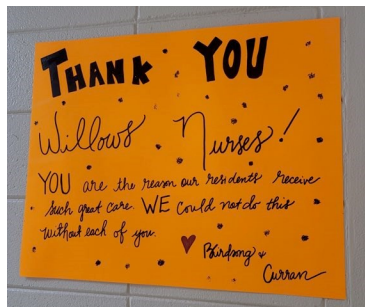 THANK YOU
Willows Nurses!
YOU are the reason our residents receive
such great care. WE could not do this
without each of you.
Birdsong &
Curran